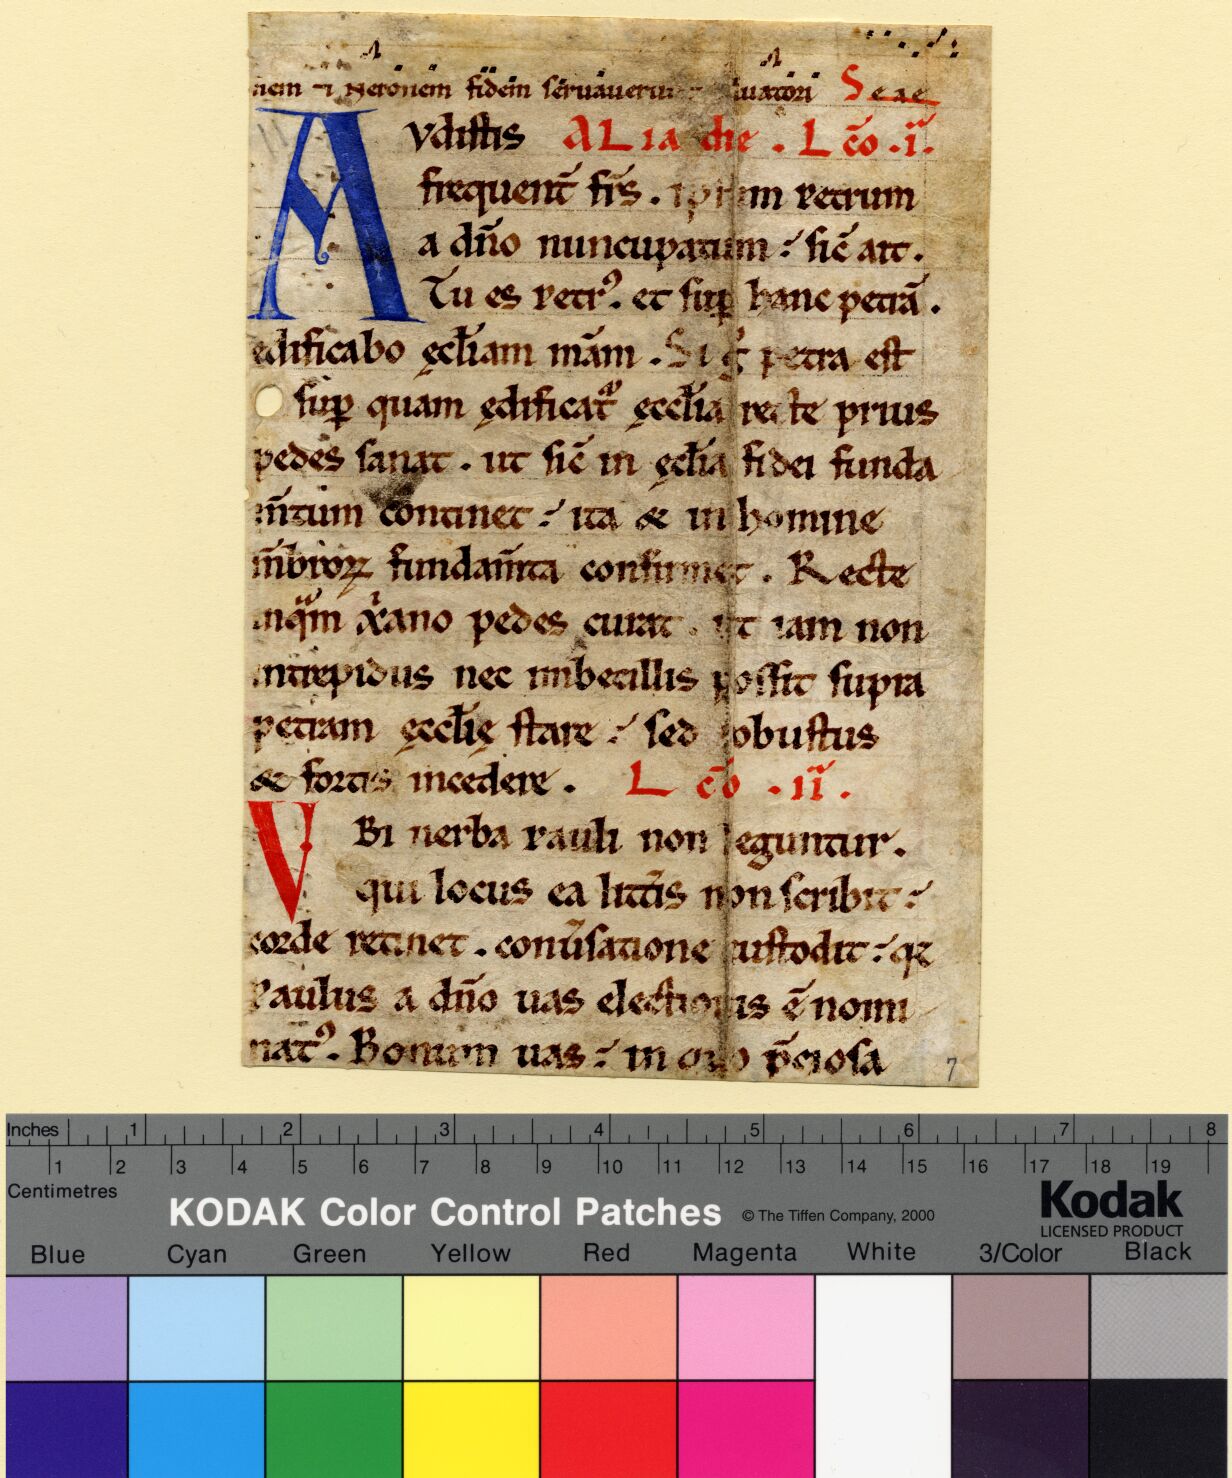 nem ⁊ Neronem fidem seruauerunt saluatori Seae
AVdistis ALIA die . L c̄o .i.
frequent̄ fr̄s . ipsum petrum
a dn̄o nuncupatum : sic̄ ait .
Tu es petrꝰ. et suꝑ hanc petrā .
edificabo ęccl̄iam m̄am . Si g̊ petra est
suꝑ quam ędificat᷑ ęccl̄ia recte prius
pedes sanat . ut sic̄ in ęccl̄ia fidei funda
m̄tum continet : ita & in homine
m̄broꝝ fundam̄ta confirmet . Recte
inquā xp̄iano pedes curat . ut iam non
intrepidus nec imbecillis possit supra
petram ęccl̄ię stare : sed robustus
& fortis incedere . L c̄o . ii .
VBi uerba pauli non leguntur .
qui locus ea litt̄is non scribit :
corde retinet . conu̾satione custodit : qꝫ
Paulus a dn̄o uas electionis ē nomi
natꝰ. Bonum uas : in quo p̄ciosa
7
Inches 1 2 3 4 5 6 7 8
1 2 3 4 5 6 7 8 9 10 11 12 13 14 15 16 17 18 19
Centimetres
KODAK Color Control Patches © The Tiffen Company, 2000 Kodak
LICENSED PRODUCT
Blue Cyan Green Yellow Red Magenta White 3/Color Black